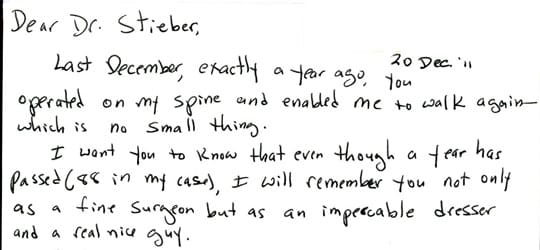 Dear Dr. Stieber,
Last December, exactly a year ago, 20 Dec. '11
you
operated on my spine and enabled me to walk again—
which is no small thing.
I want you to know that even though a year has
passed (88 in my case), I will remember you not only
as a fine surgeon but as an impeccable dresser
and a real nice guy.